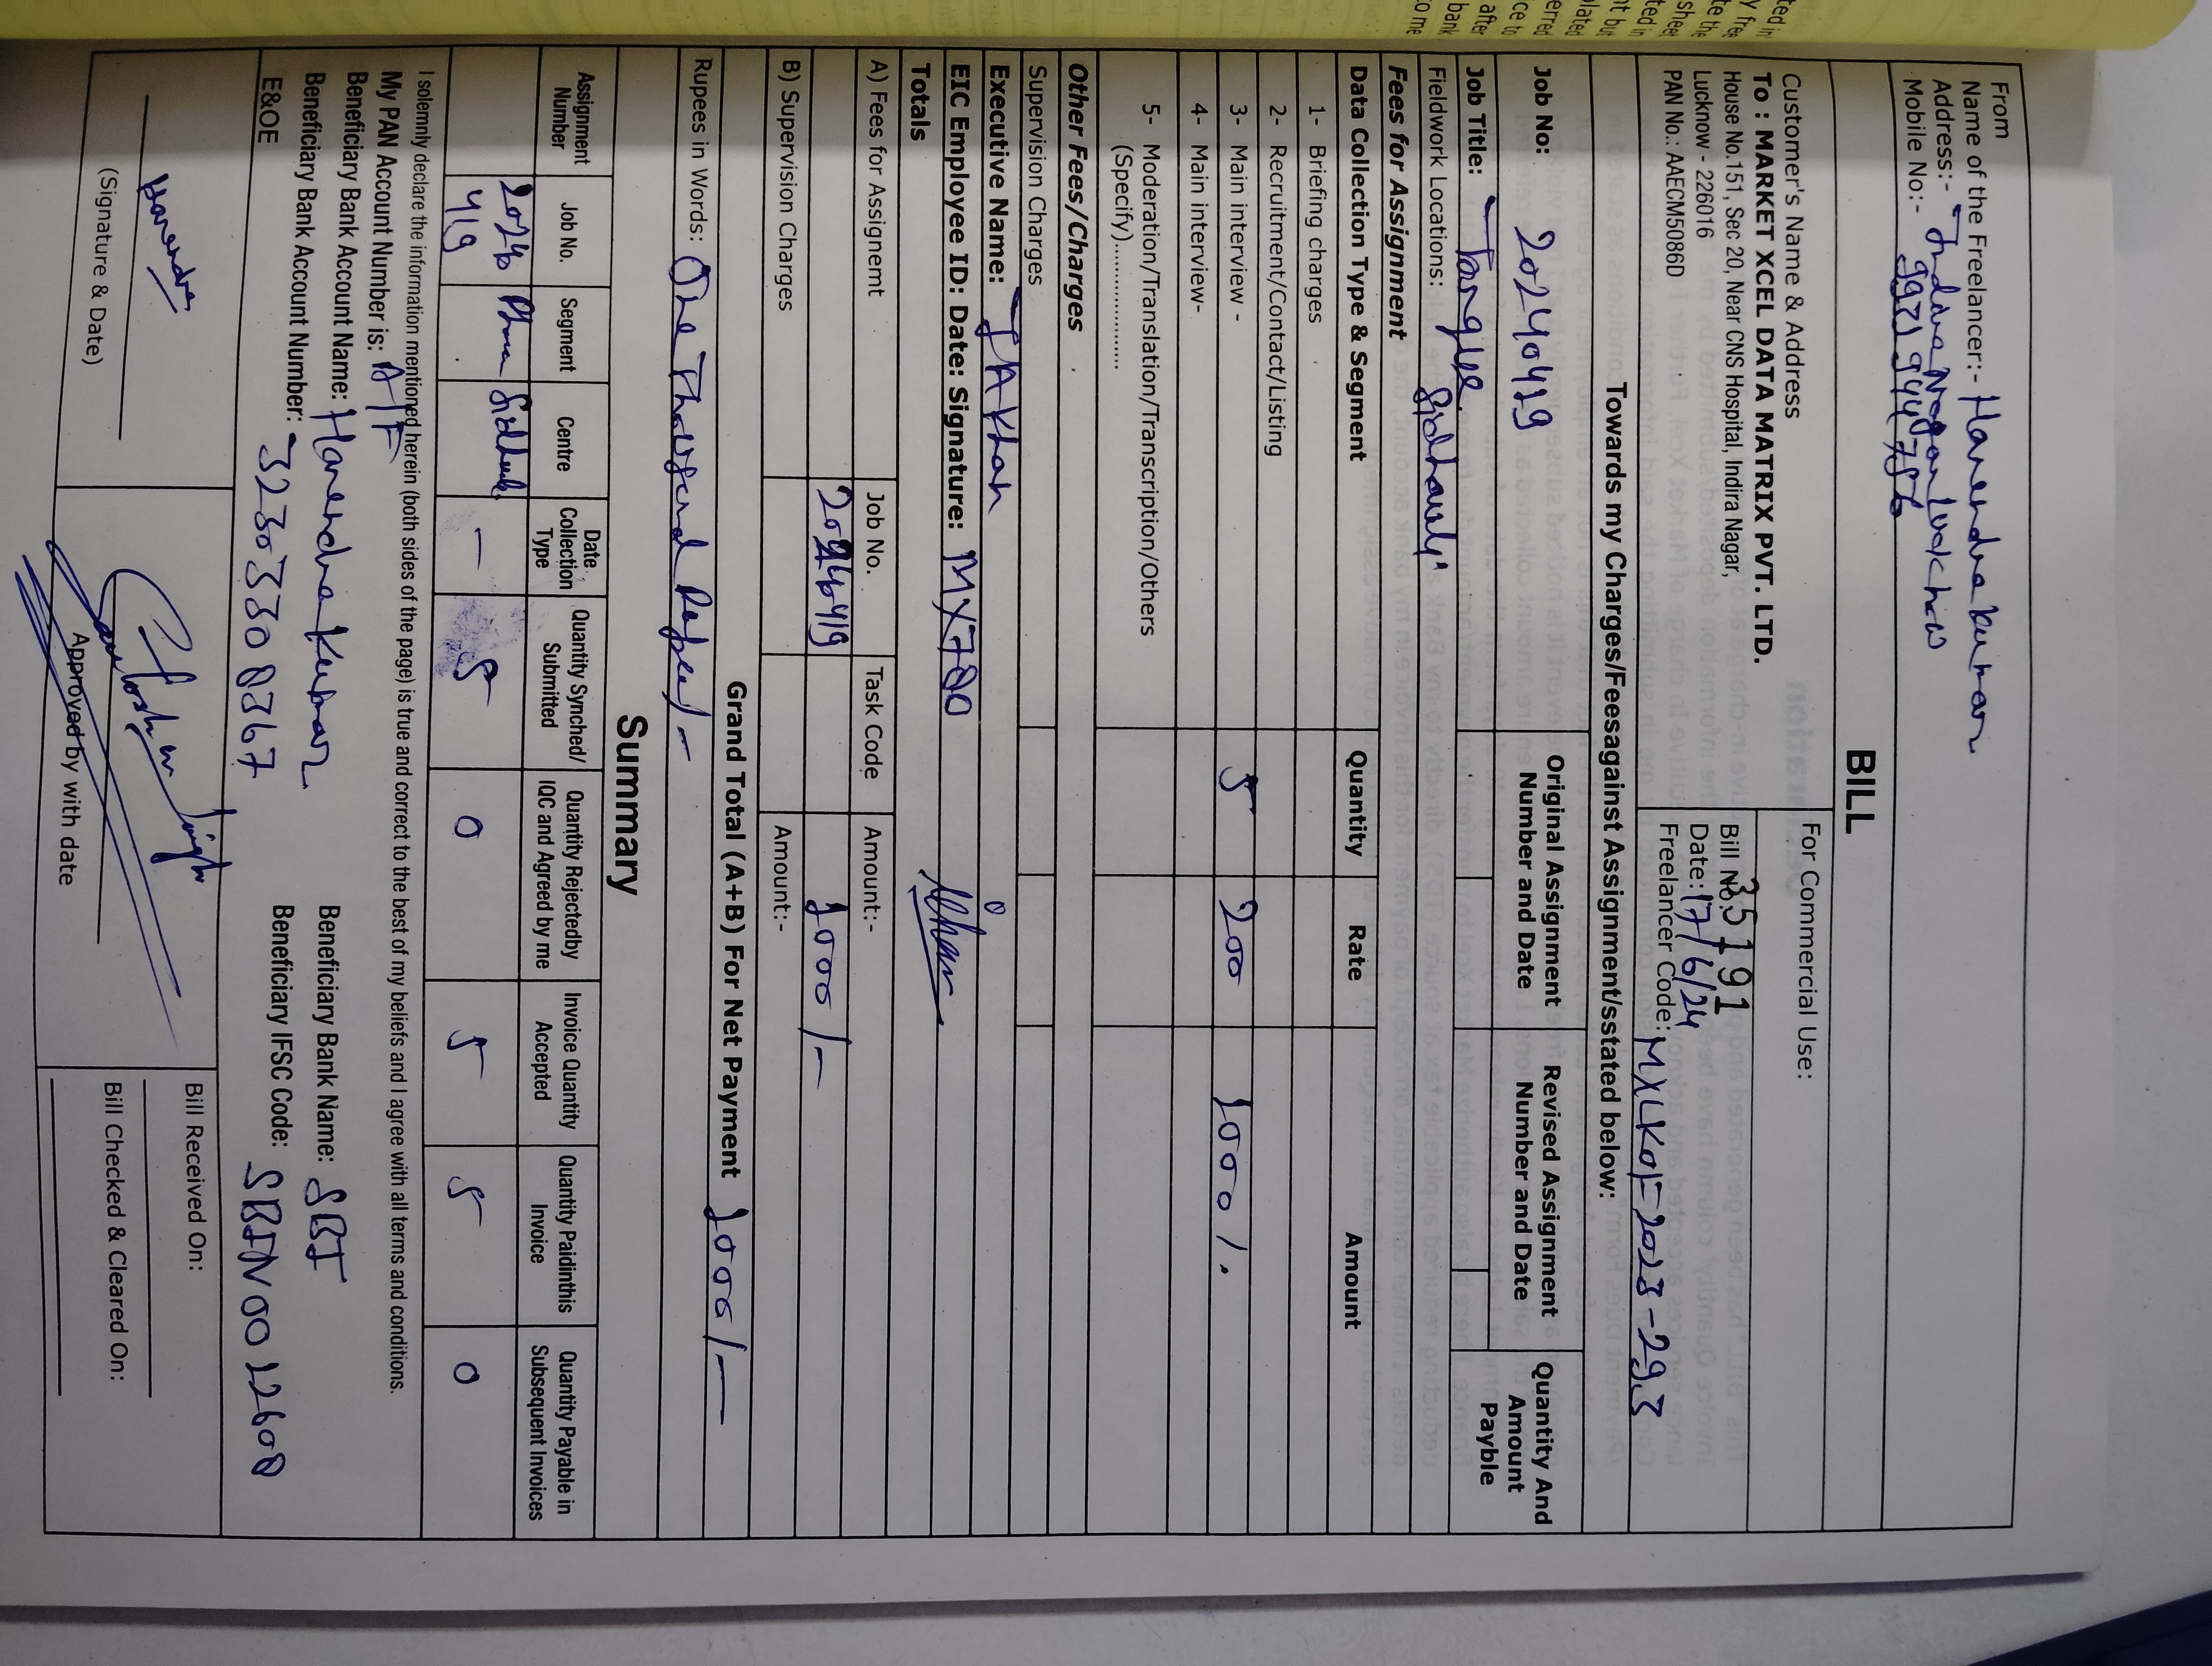 From
Name of the Freelancer:- Harendra Kumar
Address:- Indira Nagar Lucknow
Mobile No:-
BILL
Customer's Name & Address
To : MARKET XCEL DATA MATRIX PVT. LTD.
House No.151, Sec 20, Near CNS Hospital, Indira Nagar,
Lucknow - 226016
PAN No.: AAECM5086D
For Commercial Use:
Bill No. 35191
Date: 17/6/24
Freelancer Code: MXLK01-2023-293
Towards my Charges/Feesagainst Assignment/sstated below:
Job No: 20240419
Original Assignment Number and Date
Revised Assignment Number and Date
Quantity And Amount Payble
Job Title:
Fieldwork Locations:
Fees for Assignment
Data Collection Type & Segment Quantity Rate Amount
1- Briefing charges
2- Recruitment/Contact/Listing
3- Main interview - 5 200 1000/.
4- Main interview-
5- Moderation/Translation/Transcription/Others
(Specify)....................
Other Fees/Charges
Supervision Charges
Executive Name: J A Khan
EIC Employee ID: Date: Signature: MX780
Totals
A) Fees for Assignemt Job No. Task Code Amount:-
20240419 1000/-
B) Supervision Charges Amount:-
Grand Total (A+B) For Net Payment 1000/-
Rupees in Words: One Thousand Rupee/-
Summary
Assignment Number Job No. Segment Centre Date Collection Type Quantity Synched/ Submitted Quantity Rejectedby IQC and Agreed by me Invoice Quantity Accepted Quantity Paidinthis Invoice Quantity Payable in Subsequent Invoices
20240 419 — 5 0 5 5 0
I solemnly declare the information mentioned herein (both sides of the page) is true and correct to the best of my beliefs and I agree with all terms and conditions.
My PAN Account Number is: A/F
Beneficiary Bank Account Name: Harendra Kumar
Beneficiary Bank Name: SBI
Beneficiary Bank Account Number: 32303308367
Beneficiary IFSC Code: SBIN0012608
E&OE
Harendra
(Signature & Date)
Approved by with date
Bill Received On:
Bill Checked & Cleared On: